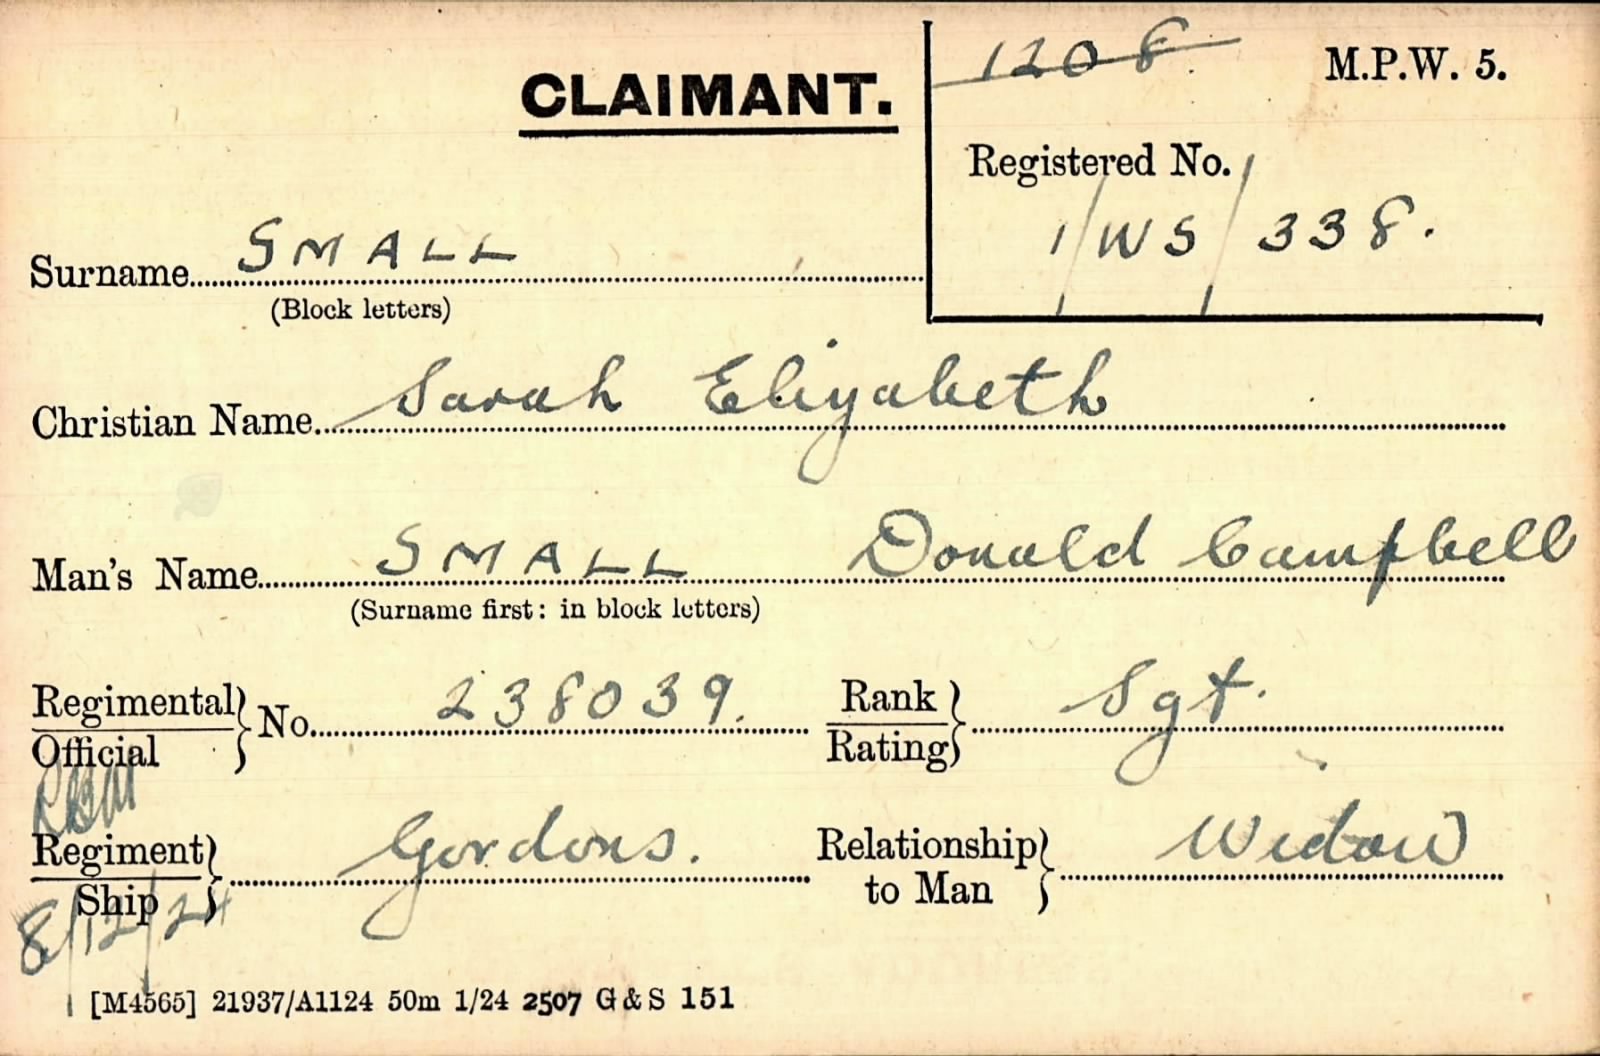 1208.
M.P.W. 5.
CLAIMANT.
Registered No.
1/WS/338.
Surname SMALL
(Block letters)
Christian Name Sarah Elizabeth
Man's Name SMALL Donald Campbell
(Surname first: in block letters)
Regimental / Official No. 238039. Rank / Rating Sgt.
Regiment / Ship Gordons. Relationship to Man Widow
8/12/24
[M4565] 21937/A1124 50m 1/24 2507 G&S 151